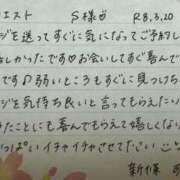 エスト S様♡ R8.3.20
ジを送ってすぐに気になってご予約し
なったしかったです♡お会いしてすぐ喜んで
♡弱いところもすぐに見つけち
ジを気持ち良いと言ってもらえたい
みたことにも喜んでもらえて嬉しくなり
っぱいイチャイチャさせてださい
新條